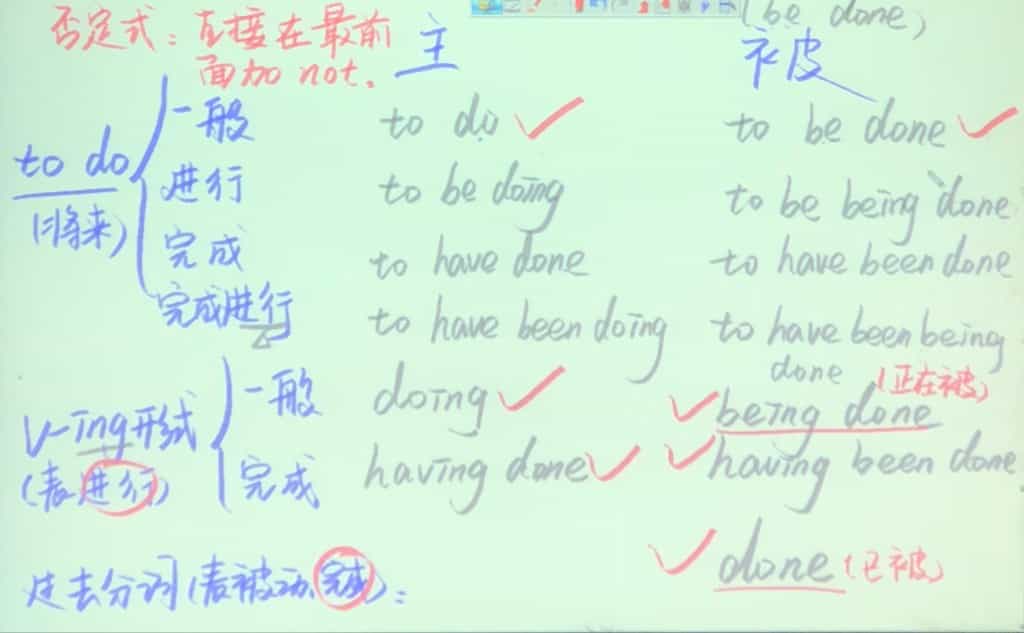 (be done)
否定式：直接在最前
面加 not.
主
被
to do
(将来)
一般 to do ✓ to be done ✓
进行 to be doing to be being done
完成 to have done to have been done
完成进行 to have been doing to have been being
done
(正在被)
V-ing形式
(表进行)
一般 doing ✓ ✓ being done
完成 having done ✓ ✓ having been done
过去分词(表被动、完成)： ✓ done (已被)